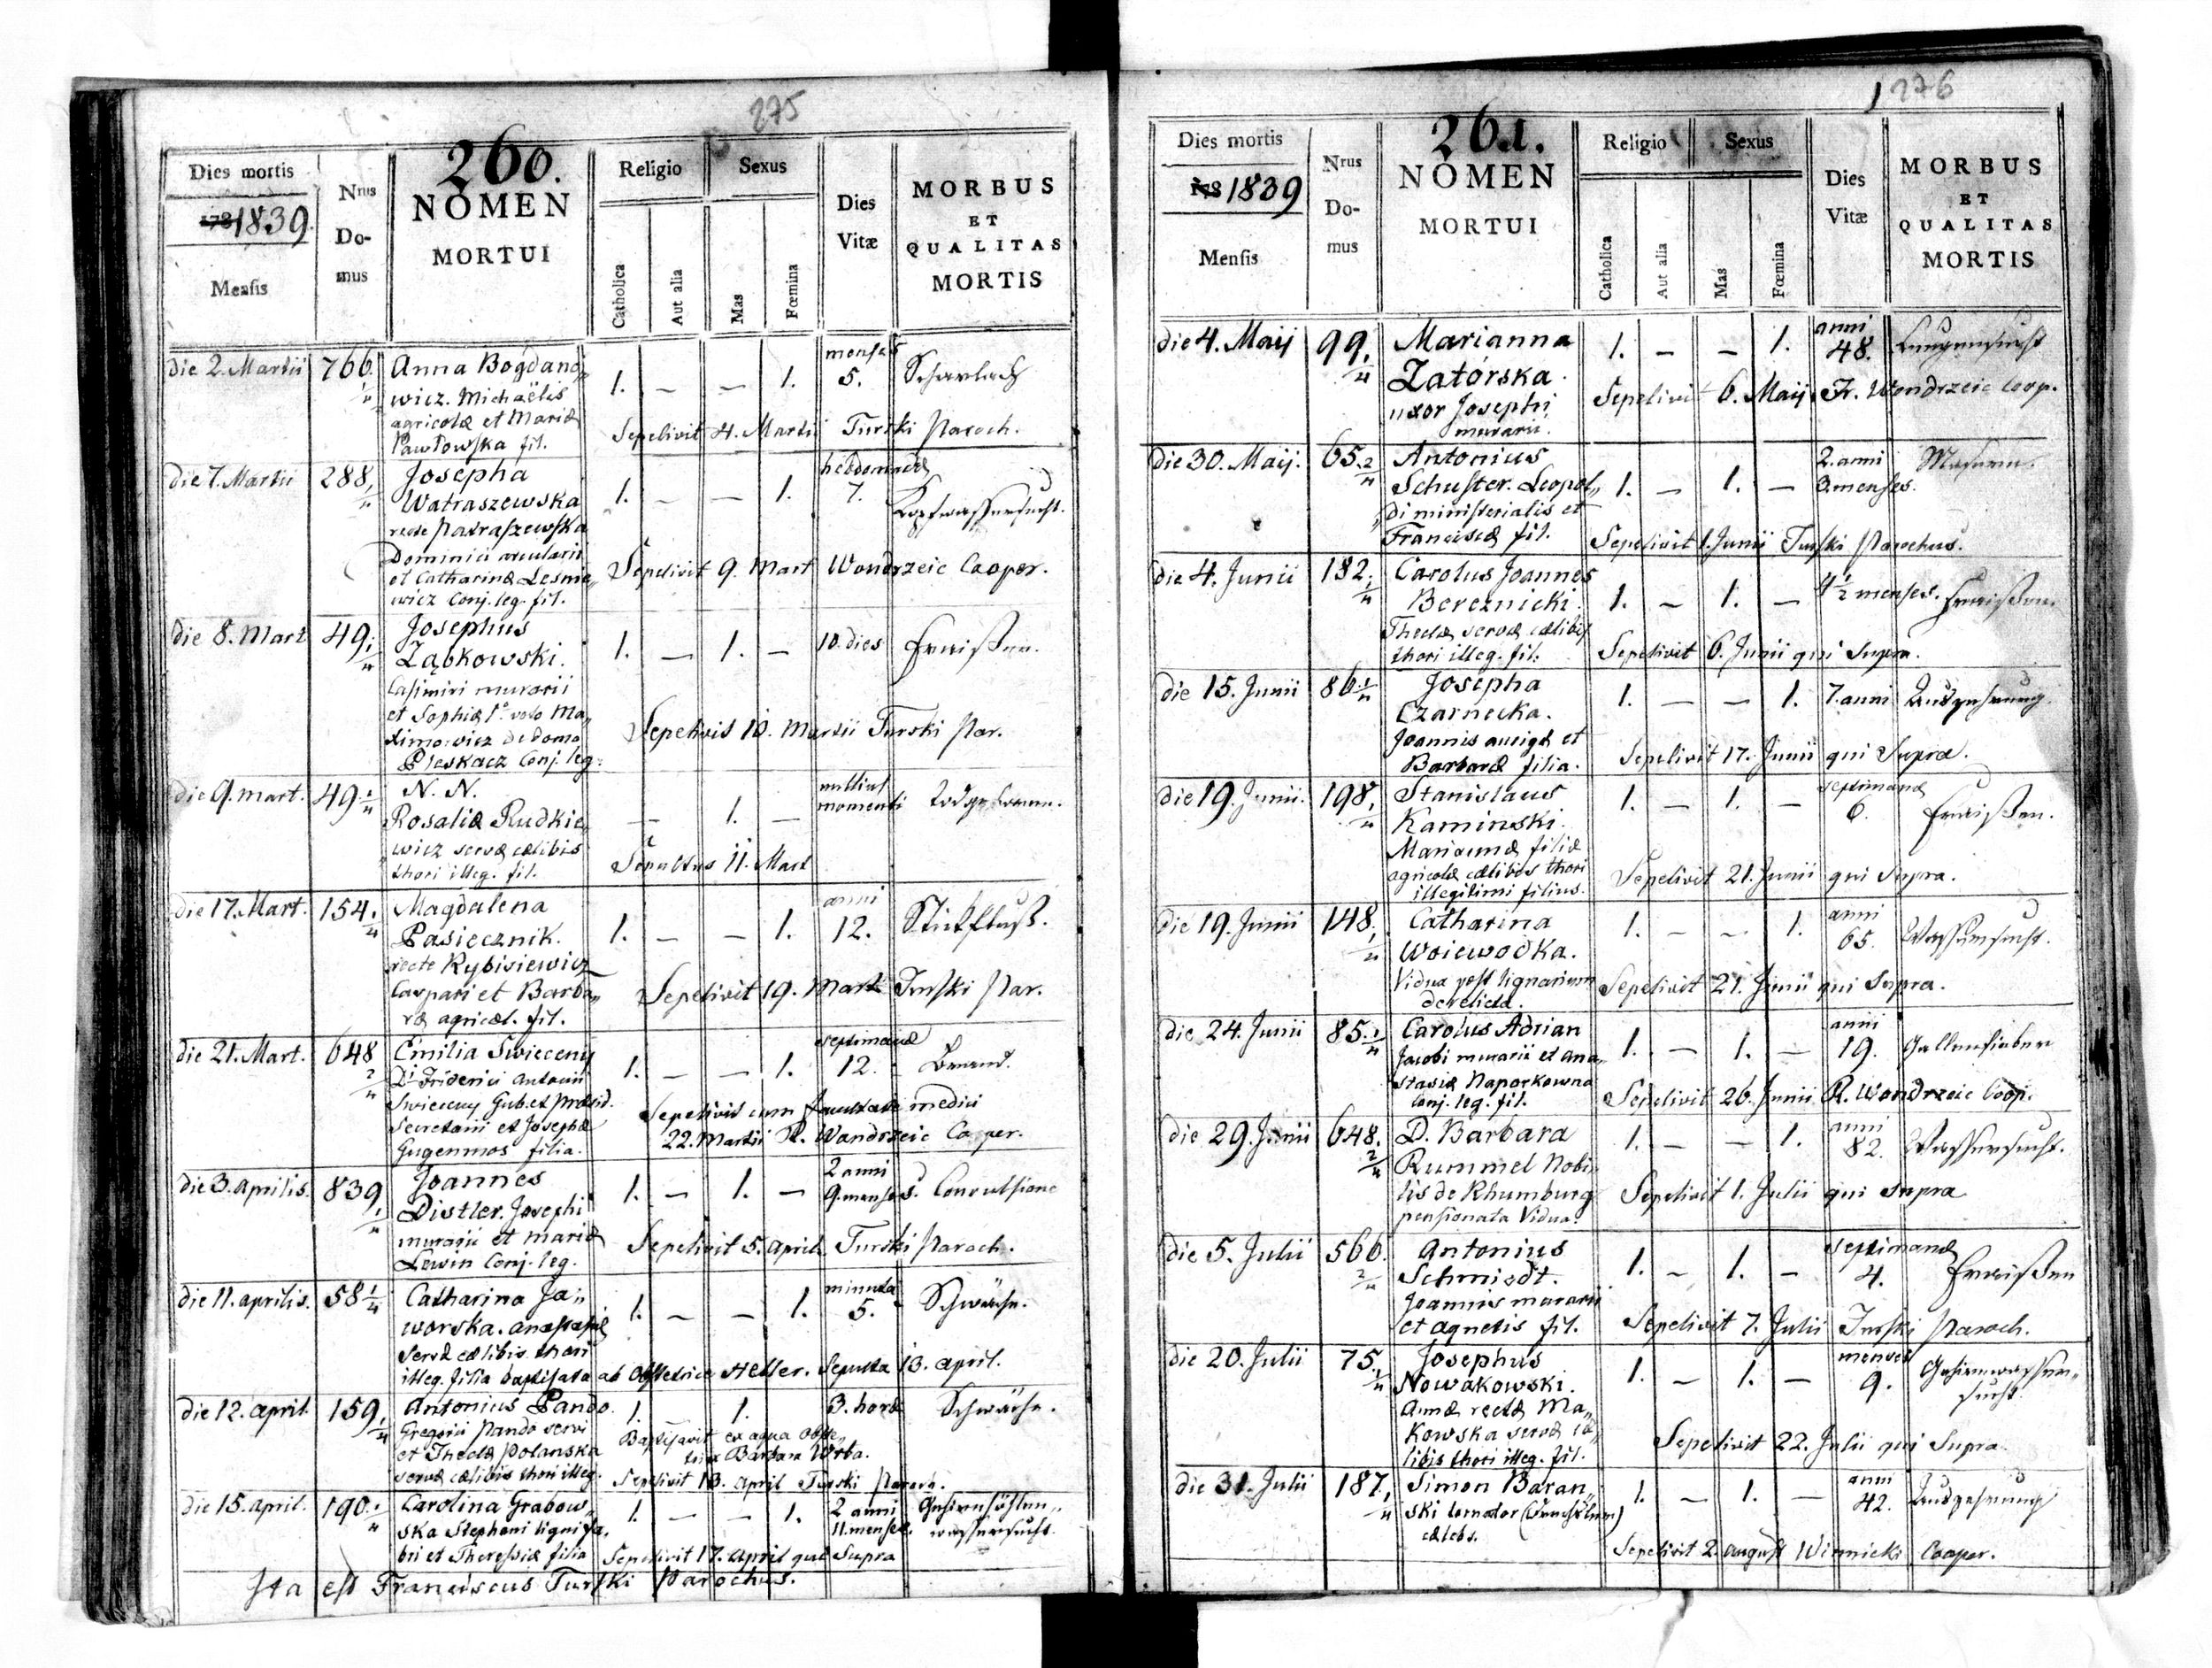 275
260.
Dies mortis
1839.
Mensis
Nrus
Do-
mus
NOMEN
MORTUI
Religio
Sexus
Catholica
Aut alia
Mas
Fœmina
Dies
Vitæ
MORBUS
ET
QUALITAS
MORTIS
die 2. Martii 766. 1/4 Anna Bogdano„ 1. — — 1. menses 5. Scharlach
wicz. Michaëlis
agricolæ et Mariæ
Pawłowska fil. Sepelivit 4. Martii Turski Paroch.
die 7. Martii 288. 1/4 Josepha 1. — — 1. hebdomadæ 7. Kopfwassersucht.
Watraszewska
recte Patraszewska
Dominici arcularii
et Catharinæ Leśnie„ Sepelivit 9. Mart Wondrzeic Cooper.
wicz Conj. leg. fil.
die 8. Mart 49. 1/4 Josephus 1. — 1. — 10. dies Fraißen.
Ząbkowski.
Casimiri murarii
et Sophiæ 1º voto Ma„ Sepelivit 10. Martii Turski Par.
ximowicz de domo
Pleskacz Conj. leg.
die 9. mart. 49 1/4 N. N. — 1. — nullius momenti Todgeboren.
Rosaliæ Rudkie„
wicz servæ cælibis
thori illeg. fil. Sepultus 11. Mart
die 17. Mart. 154. 1/4 Magdalena 1. — — 1. anni 12. Stickfluß.
Pasiecznik.
recte Rybisiewicz
Caspari et Barba„ Sepelivit 19. Mart Turski Par.
ræ agricol. fil.
die 21. Mart. 648 2/4 Emilia Swieceny 1. — — 1. septimanæ 12. Brand.
Di Friderici Antonii
Swieceny Gub. et Præsid.
Secretarii et Josephæ Sepelivit cum facultate medici
Gugenmos filia. 22. Martii R. Wondrzeic Cooper.
die 3. aprilis. 839. 1/4 Joannes 1. — 1. — 2 anni 9. menses. Convulsione
Distler. Josephi
murarii et mariæ Sepelivit 5. April Turski Paroch.
Lewin Conj. leg.
die 11. aprilis. 58 1/4 Catharina Ja„ 1. — — 1. minuta 5. Schwäche.
worska. anastasiæ
Servæ cælibis thori
illeg. filia baptisata ab Obstetrice Heller. Sepulta 13. april.
die 12. april. 159. 1/4 Antonius Pando. 1. — 1. 3. horæ Schwäche.
Gregorii Pando servi Baptisavit ex aqua Obste„
et Theclæ Polanska trix Barbara Wrba.
servæ cælibis thori illeg. Sepelivit 13. april Turski Paroch.
die 15. april. 190. 1/4 Carolina Grabow„ 1. — — 1. 2 anni 11. menses. Gehirnhöhlen„
ska Stephani lignifa„ wassersucht.
bri et Theressiæ filia Sepelivit 17. april qui Supra
Ita est Franciscus Turski Parochus.
276
261.
Dies mortis
1839
Mensis
Nrus
Do-
mus
NOMEN
MORTUI
Religio
Sexus
Catholica
Aut alia
Mas
Fœmina
Dies
Vitæ
MORBUS
ET
QUALITAS
MORTIS
die 4. Maij 99. 1/4 Marianna 1. — — 1. anni 48. Lungensucht
Zatórska.
uxor Josephi Sepelivit 6. Maij Fr. Wondrzeic Coop.
murarii.
die 30. Maij. 65. 2/4 Antonius 1. — 1. — 2. anni 3. menses. Masern.
Schuster. Leopol„
di ministerialis et
Franciscæ fil. Sepelivit 1. Junii Turski Parochus.
die 4. Junii 182. 1/4 Carolus Joannes 1. — 1. — 4 1/2 menses. Fraißen.
Bereznicki.
Theclæ servæ cælibis
thori illeg. fil. Sepelivit 6. Junii qui Supra.
die 15. Junii 86 1/4 Josepha 1. — — 1. 7. anni Auszehrung.
Czarnecka.
Joannis aurigæ et
Barbaræ filia. Sepelivit 17. Junii qui Supra.
die 19. Junii. 198. 1/4 Stanislaus 1. — 1. — septimanæ 6. Fraißen.
Kaminski.
Mariannæ filiæ
agricolæ cælibis thori Sepelivit 21. Junii qui Supra.
illegitimi filius.
die 19. Junii 148. 1/4 Catharina 1. — — 1. anni 65. Wassersucht.
Woiewodka.
Vidua post lignarium Sepelivit 21. Junii qui Supra.
derelicta.
die 24. Junii 85. 1/4 Carolus Adrian 1. — 1. — anni 19. Gallenfieber
Jacobi murarii et Ana„
stasiæ Naporkowna
Conj. leg. fil. Sepelivit 26. Junii R. Wondrzeic Coop.
die 29. Junii 648. 2/4 D. Barbara 1. — — 1. anni 82. Wassersucht.
Rummel Nobi„
lis de Rhumburg Sepelivit 1. Julii qui Supra
pensionata Vidua.
die 5. Julii 566. 2/4 Antonius 1. — 1. — septimanæ 4. Fraißen
Schmiedt.
Joannis murarii
et agnetis fil. Sepelivit 7. Julii Turski Paroch.
die 20. Julii 75. 1/4 Josephus 1. — 1. — menses 9. Gehirnwasser„
Nowakowski. sucht.
Annæ rectæ Ma„
kowska servæ cæ„ Sepelivit 22. Julii qui Supra.
libis thori illeg. fil.
die 31. Julii 187. 1/4 Simon Baran„ 1. — 1. — anni 42. Auszehrung
ski tornator (Drechsler)
cælebs.
Sepelivit 2. August Winnicki Cooper.